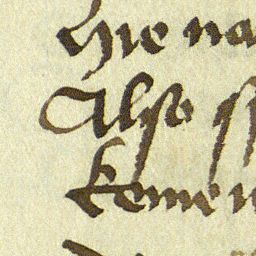 hie na
Also sp
keme